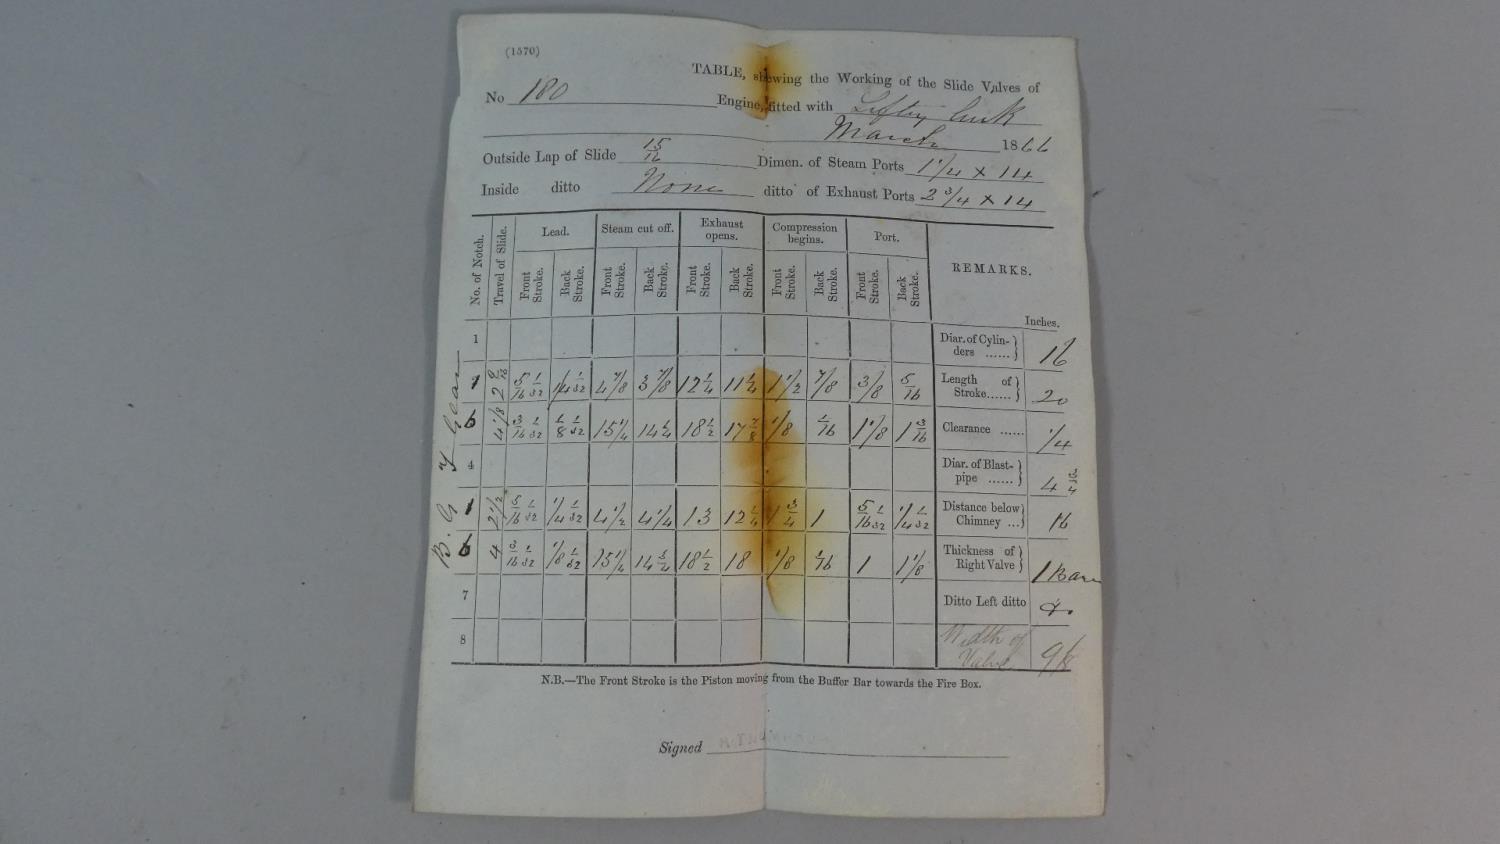 (1570)
TABLE, shewing the Working of the Slide Valves of
No 180 Engine, fitted with
March 1866
Outside Lap of Slide 15/16 Dimen. of Steam Ports 1 1/4 x 14
Inside ditto None ditto of Exhaust Ports 2 3/4 x 14
No. of Notch. Travel of Slide. Lead. Steam cut off. Exhaust opens. Compression begins. Port. REMARKS.
Front Stroke. Back Stroke. Front Stroke. Back Stroke. Front Stroke. Back Stroke. Front Stroke. Back Stroke. Front Stroke. Back Stroke.
Inches.
1 Diar. of Cylinders ...... 16
1 2 9/16 5/16 1/32 1/4 1/32 4 7/8 3 7/8 12 1/4 11 1/4 1 1/2 7/8 3/8 5/16 Length of Stroke...... 20
6 4 1/8 3/16 1/32 1/8 1/32 15 1/4 14 1/4 18 1/2 17 7/8 1/8 1/16 1 1/8 1 3/16 Clearance ...... 1/4
4 Diar. of Blast-pipe ...... 4 3/4
1 2 1/2 5/16 1/32 1/4 1/32 4 1/2 4 1/4 13 12 1/4 1 3/4 1 5/16 1/32 1/4 1/32 Distance below Chimney ... 16
6 4 3/16 1/32 1/8 1/32 15 1/4 14 3/4 18 1/2 18 1/8 1/16 1 1 1/8 Thickness of Right Valve 1 Bare
7 Ditto Left ditto
8 Width of Valve
B. G F Gear
N.B.—The Front Stroke is the Piston moving from the Buffer Bar towards the Fire Box.
Signed